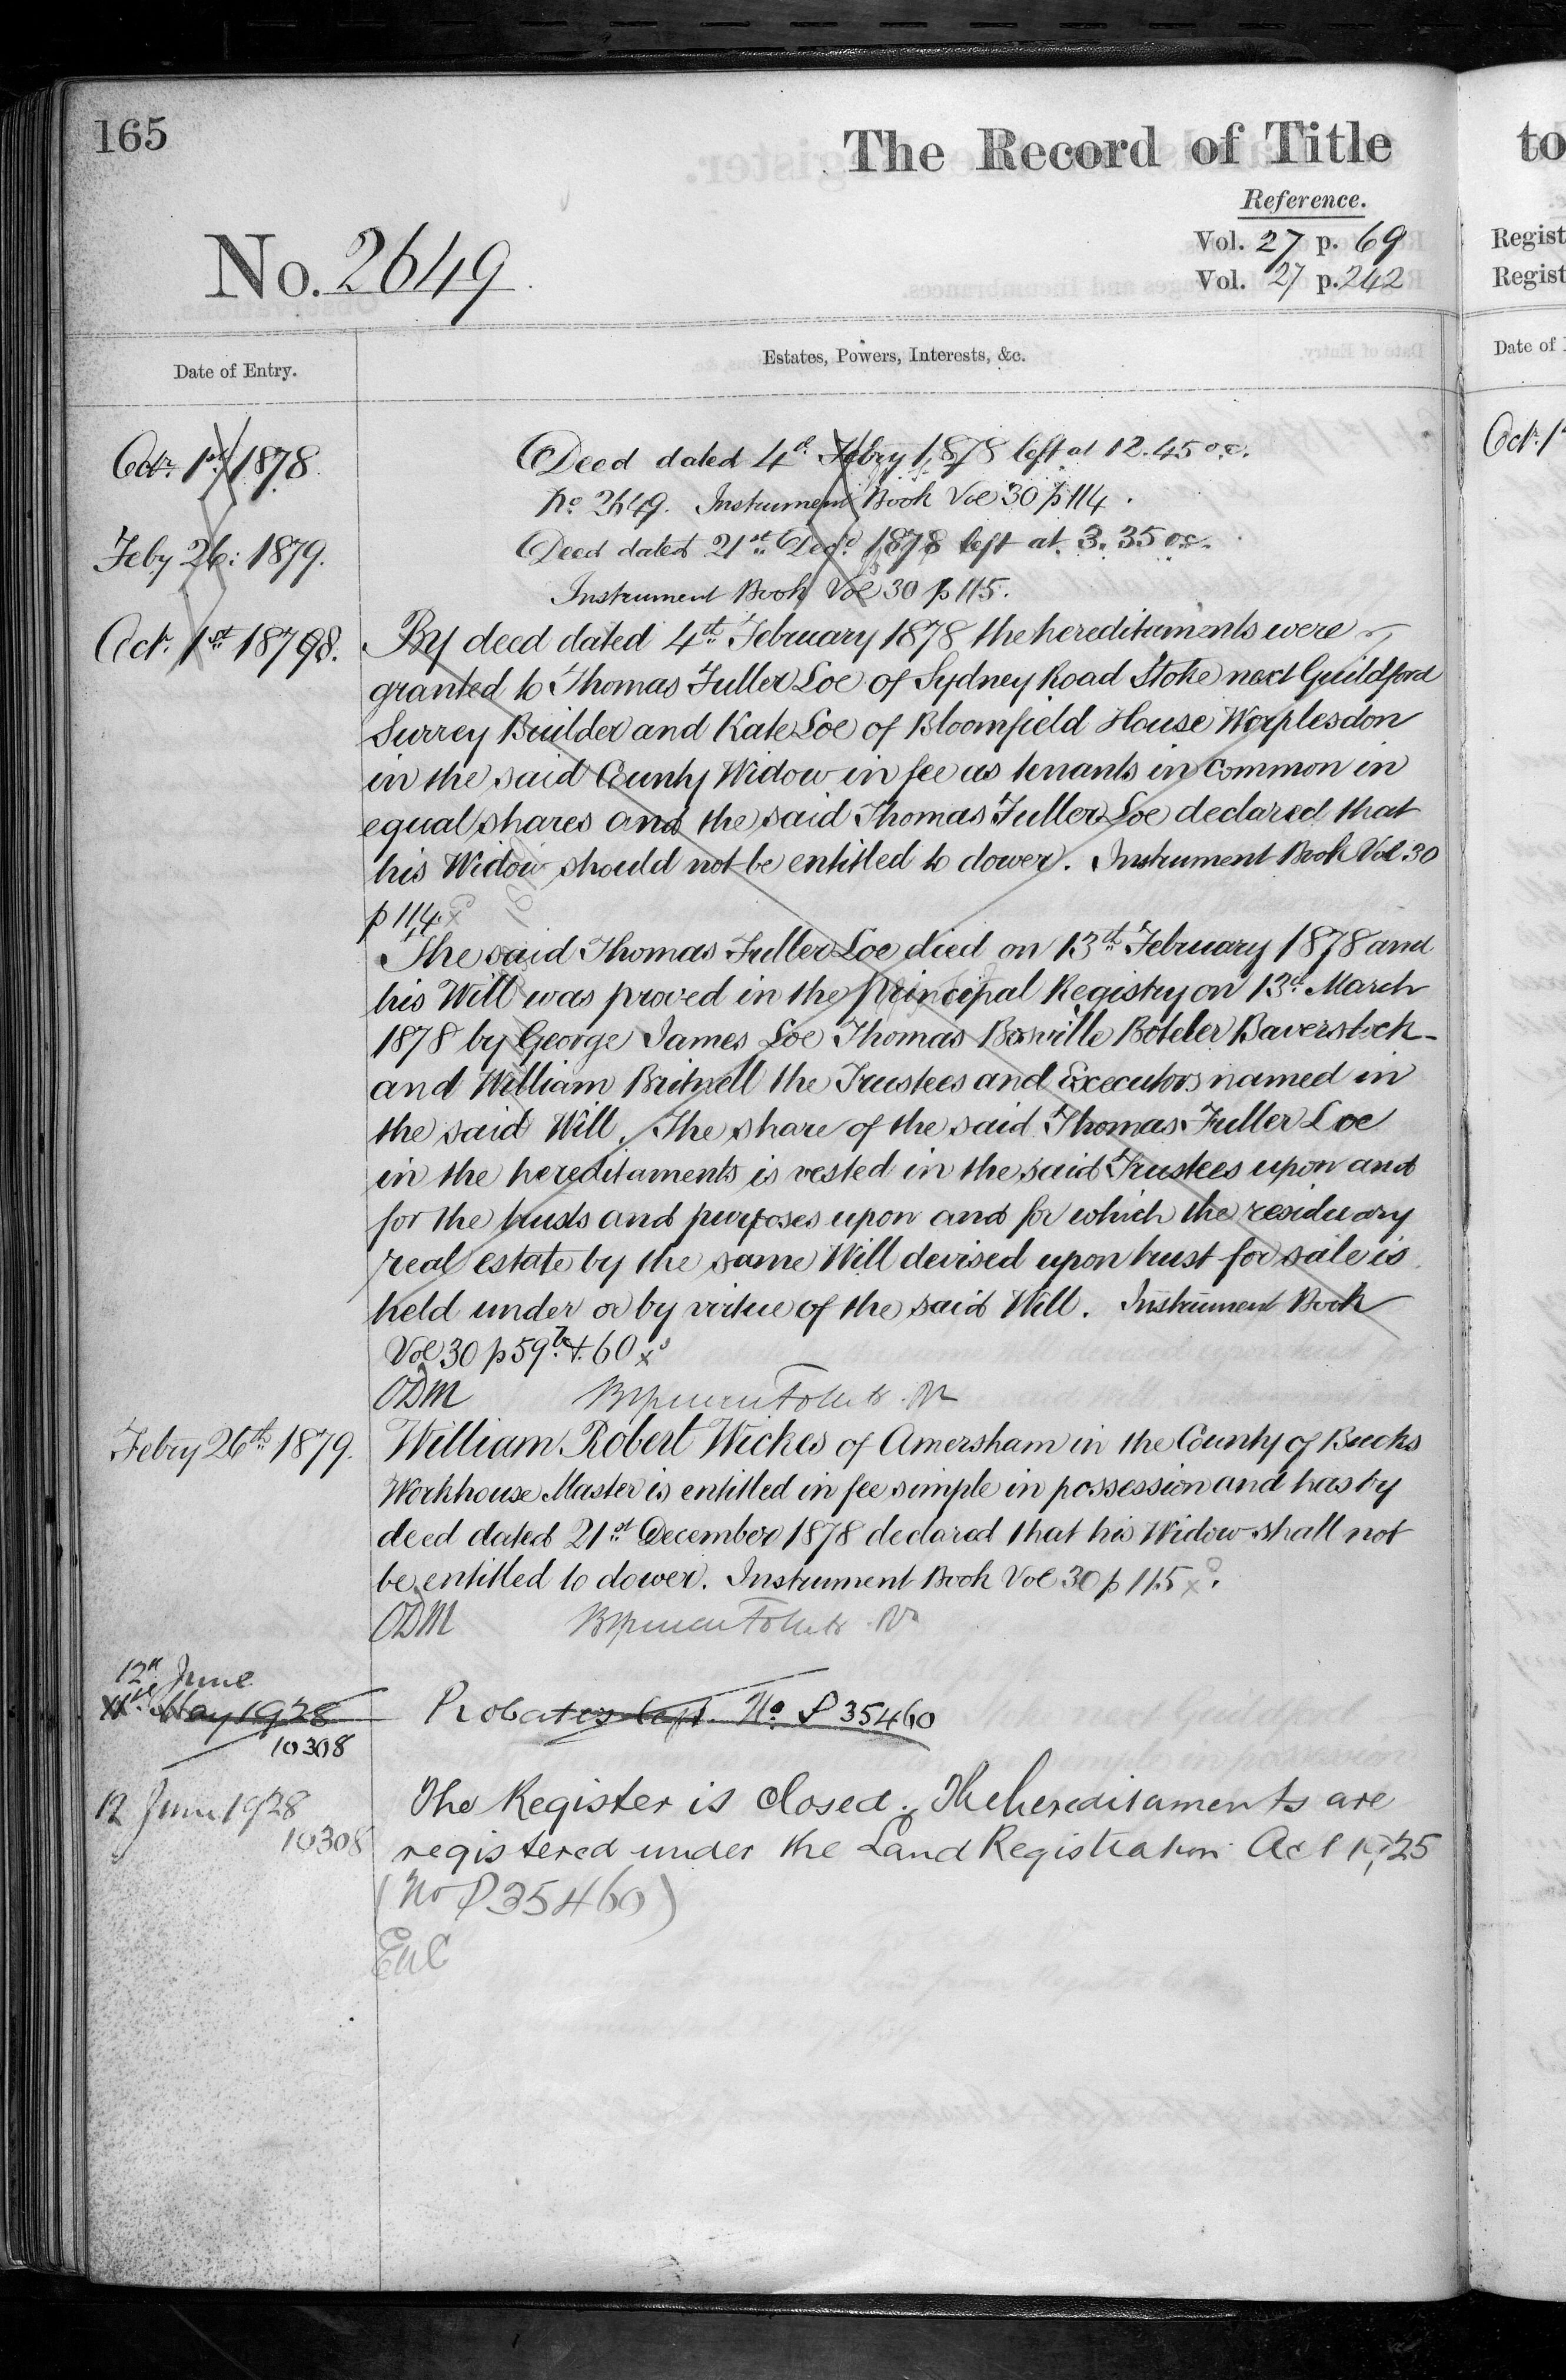 165
The Record of Title
Reference.
Vol. 27 p. 69
Vol. 27 p. 242
No. 2649
Date of Entry.
Estates, Powers, Interests, &c.
Octr. 1st 1878.
Deed dated 4th Febry 1878 left at 12.45 oc.
No. 2649. Instrument Book Vol 30 p 114.
Feby 26: 1879.
Deed dated 21st Decr. 1878 left at 3.35 oc.
Instrument Book Vol 30 p 115.
Octr. 1st 1878.
By deed dated 4th February 1878 the hereditaments were
granted to Thomas Fuller Loe of Sydney Road Stoke next Guildford
Surrey Builder and Kate Loe of Bloomfield House Worplesdon
in the said County Widow in fee as tenants in common in
equal shares and the said Thomas Fuller Loe declared that
his Widow should not be entitled to dower. Instrument Book Vol 30
p 114.
The said Thomas Fuller Loe died on 13th February 1878 and
his Will was proved in the Principal Registry on 13th March
1878 by George James Loe Thomas Bosville Boteler Baverstock
and William Britnell the Trustees and Executors named in
the said Will. The share of the said Thomas Fuller Loe
in the hereditaments is vested in the said Trustees upon and
for the trusts and purposes upon and for which the residuary
real estate by the same Will devised upon trust for sale is
held under or by virtue of the said Will. Instrument Book
Vol 30 p 59 & 60
ODM
Febry 26th 1879.
William Robert Wickes of Amersham in the County of Bucks
Workhouse Master is entitled in fee simple in possession and has by
deed dated 21st December 1878 declared that his Widow shall not
be entitled to dower. Instrument Book Vol 30 p 115.
ODM
12th June
May 1928
10308
Probates left. No. P 35460
12 June 1928
10308
The Register is closed. The hereditaments are
registered under the Land Registration Act 1925
(No P 35460)
to
Regist
Regist
Date of
Oct. 1